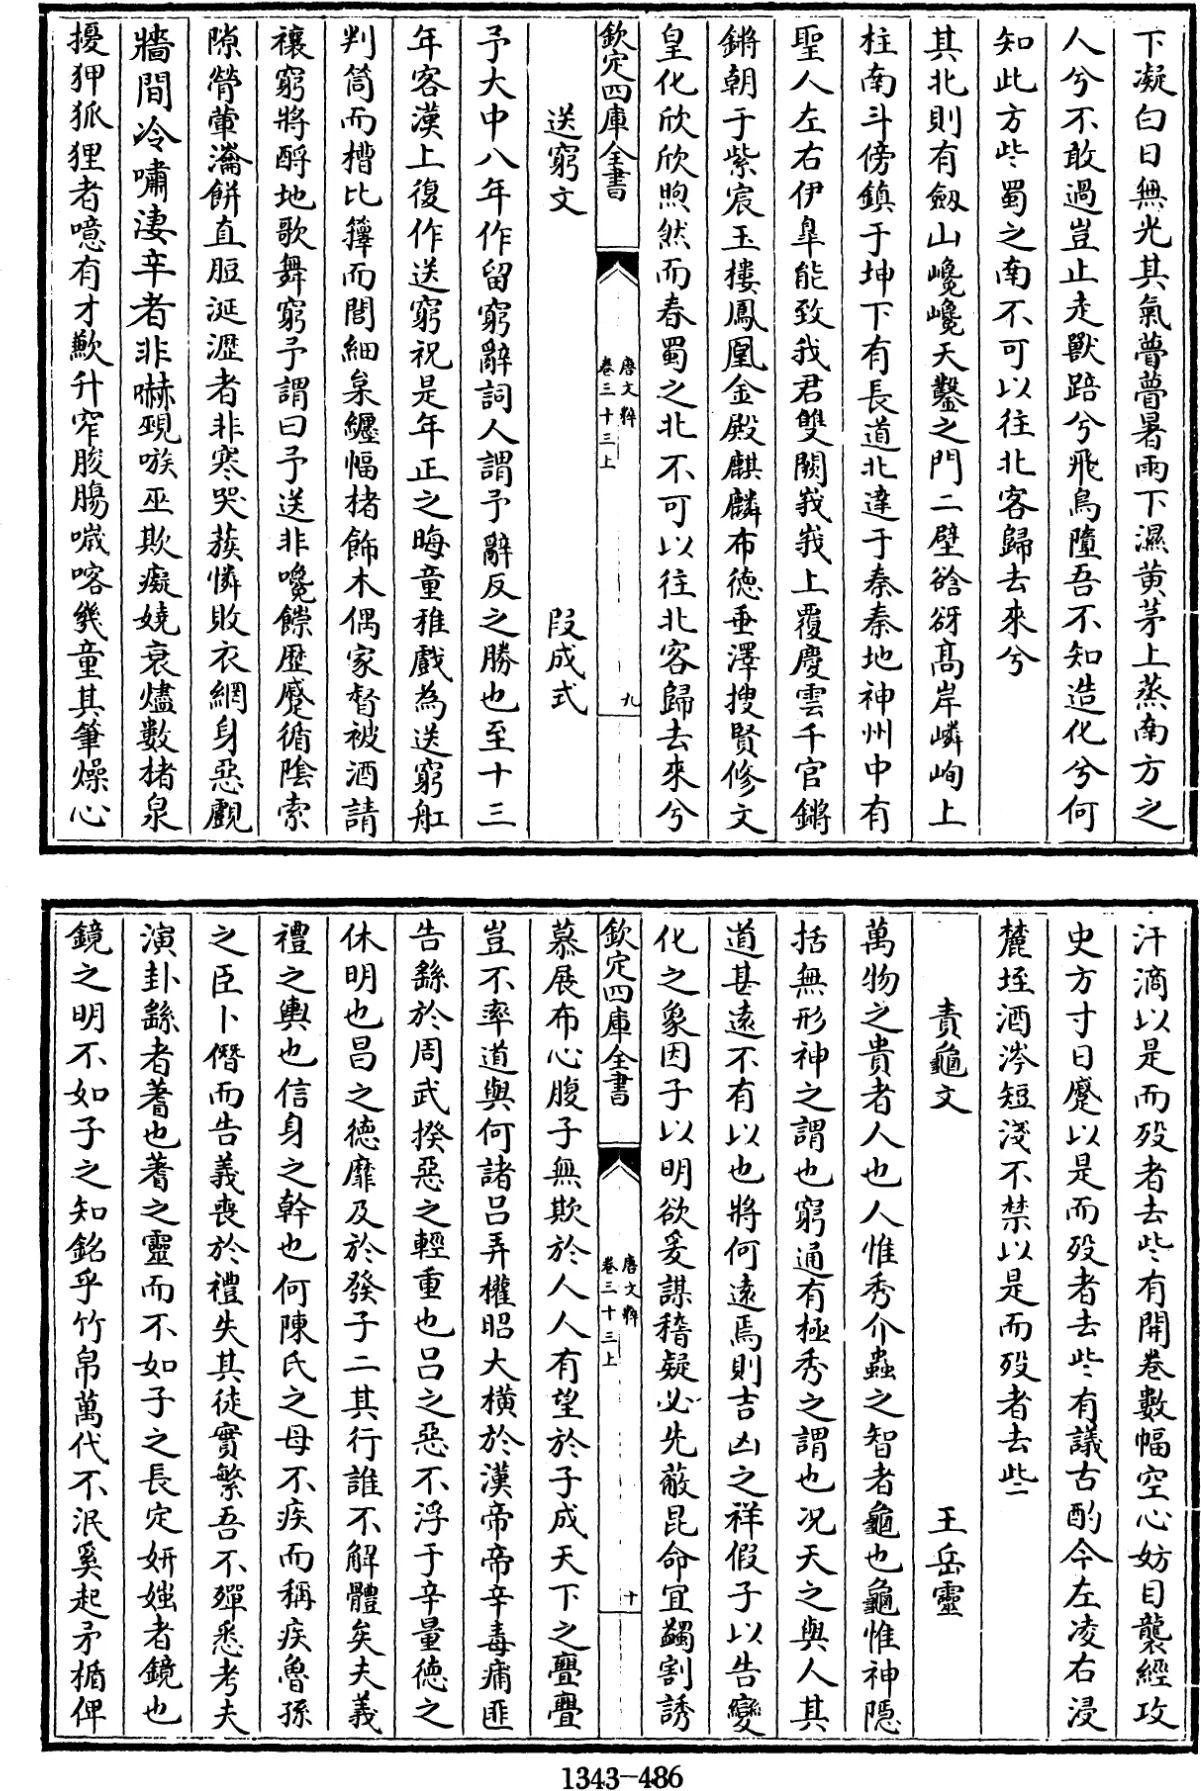 下凝白日無光其氣瞢瞢暑雨下濕黄茅上蒸南方之
人兮不敢過豈止走獸踣兮飛鳥墮吾不知造化兮何
知此方些蜀之南不可以往北客歸去來兮
其北則有劔山巉巉天鑿之門二壁谽谺髙岸嶙峋上
柱南斗傍鎮于坤下有長道北達于秦秦地神州中有
聖人左右伊臯能致我君雙闕峩峩上覆慶雲千官鏘
鏘朝于紫宸玉樓鳳凰金殿麒麟布德垂澤搜賢修文
皇化欣欣煦然而春蜀之北不可以往北客歸去來兮
欽定四庫全書
唐文粹
卷三十三上
九
送窮文 段成式
予大中八年作留窮辭詞人謂予辭反之勝也至十三
年客漢上復作送窮祝是年正之晦童稚戲為送窮舡
判筒而槽比籜而閭細枲纒幅楮飾木偶家督被酒請
禳窮將酹地歌舞窮予謂曰予送非嚵餻歴蹙循陰索
隙膋葷瀹餅直脰涎瀝者非寒哭蔟憐敗衣網身惡覵
牆間冷嘯淒辛者非嚇覡嗾巫欺癡嬈衰燼數楮泉
擾狎狐狸者噫有才歉升窄朘腸嘰喀㡬童其筆燥心
汗滴以是而殁者去些有開卷數幅空心妨目襲經攻
史方寸日蹙以是而殁者去些有議古酌今左凌右浸
麓埕酒涔短淺不禁以是而殁者去些
責龜文 王岳靈
萬物之貴者人也人惟秀介蟲之智者龜也龜惟神隠
括無形神之謂也窮通有極秀之謂也况天之與人其
道甚遠不有以也將何遠焉則吉凶之祥假子以告變
化之象因子以明欲爰謀稽疑必先蔽昆命宜蠲割誘
欽定四庫全書
唐文粹
卷三十三上
十
慕展布心腹子無欺於人人有望於子成天下之亹亹
豈不率道與何諸呂弄權昭大横於漢帝帝辛毒痡匪
告繇於周武揆惡之輕重也呂之惡不浮于辛量徳之
休明也昌之德靡及於發子二其行誰不解體矣夫義
禮之輿也信身之幹也何陳氏之母不疾而稱疾魯孫
之臣卜僭而告義喪於禮失其徒實繁吾不殫悉考夫
演卦繇者蓍也蓍之靈而不如子之長定妍媸者鏡也
鏡之明不如子之知銘乎竹帛萬代不泯奚起矛楯俾
1343-486